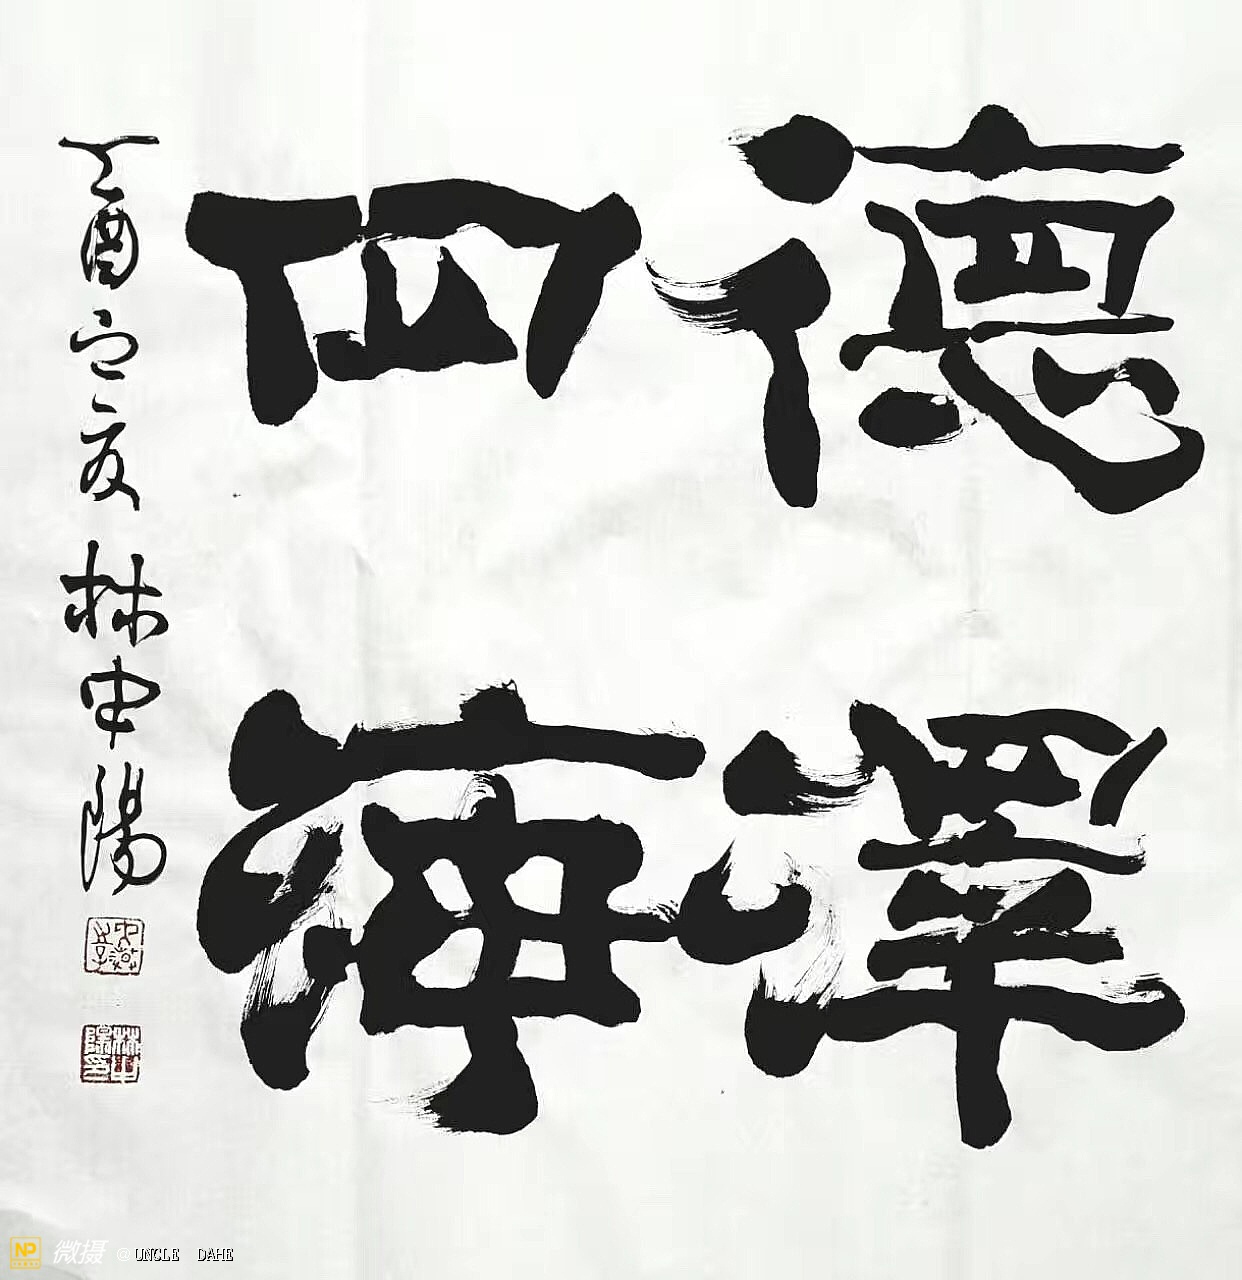 德澤
四海
丁酉之夏林中陽
林中陽印
NP 微摄 © UNCLE DAHE